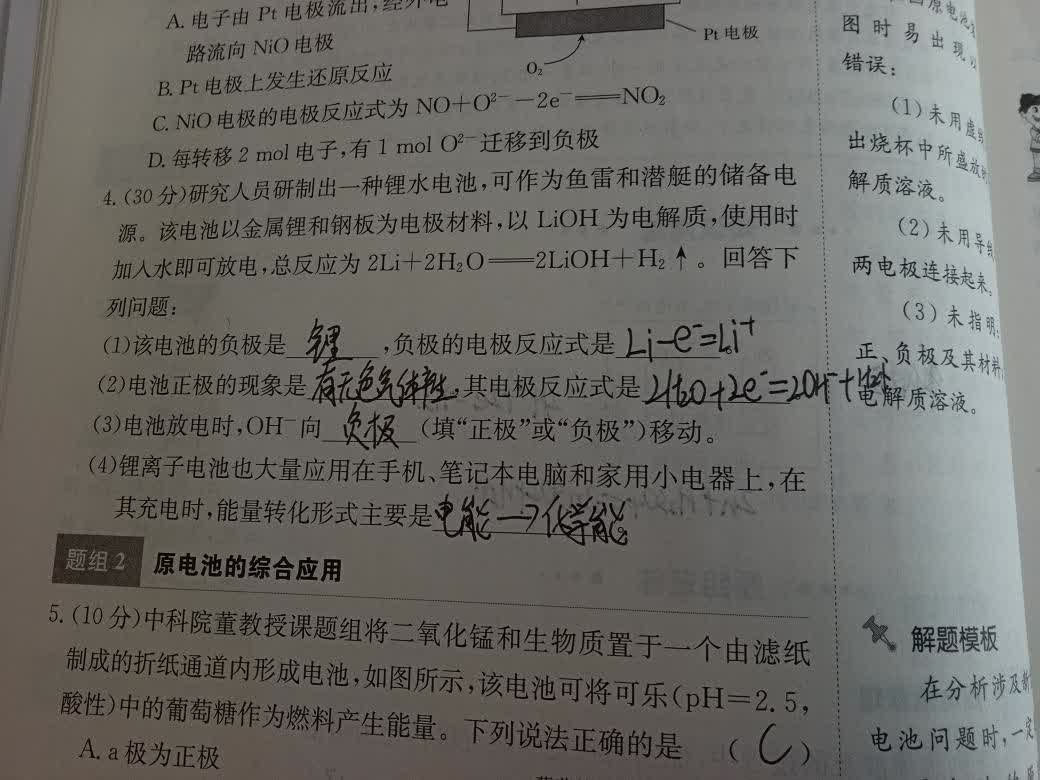 A. 电子由 Pt 电极流出,经外电
路流向 NiO 电极
B. Pt 电极上发生还原反应
C. NiO 电极的电极反应式为 NO+O²⁻−2e⁻══NO₂
D. 每转移 2 mol 电子,有 1 mol O²⁻ 迁移到负极
Pt 电极
O₂
4. (30 分)研究人员研制出一种锂水电池,可作为鱼雷和潜艇的储备电
源。该电池以金属锂和钢板为电极材料,以 LiOH 为电解质,使用时
加入水即可放电,总反应为 2Li+2H₂O══2LiOH+H₂↑。回答下
列问题:
(1)该电池的负极是 锂 ,负极的电极反应式是 Li−e⁻=Li⁺
(2)电池正极的现象是 有无色气体产生,其电极反应式是 2H₂O+2e⁻=2OH⁻+H₂↑
(3)电池放电时,OH⁻ 向 负极 (填“正极”或“负极”)移动。
(4)锂离子电池也大量应用在手机、笔记本电脑和家用小电器上,在
其充电时,能量转化形式主要是 电能→化学能
题组 2 原电池的综合应用
5. (10 分)中科院董教授课题组将二氧化锰和生物质置于一个由滤纸
制成的折纸通道内形成电池,如图所示,该电池可将可乐(pH=2.5,
酸性)中的葡萄糖作为燃料产生能量。下列说法正确的是 ( C )
A. a 极为正极
原电池
图时易出现
错误:
(1)未用虚线
出烧杯中所盛放
解质溶液。
(2)未用导线
两电极连接起来。
(3)未指明
正、负极及其材料
电解质溶液。
解题模板
在分析涉及
电池问题时,一定